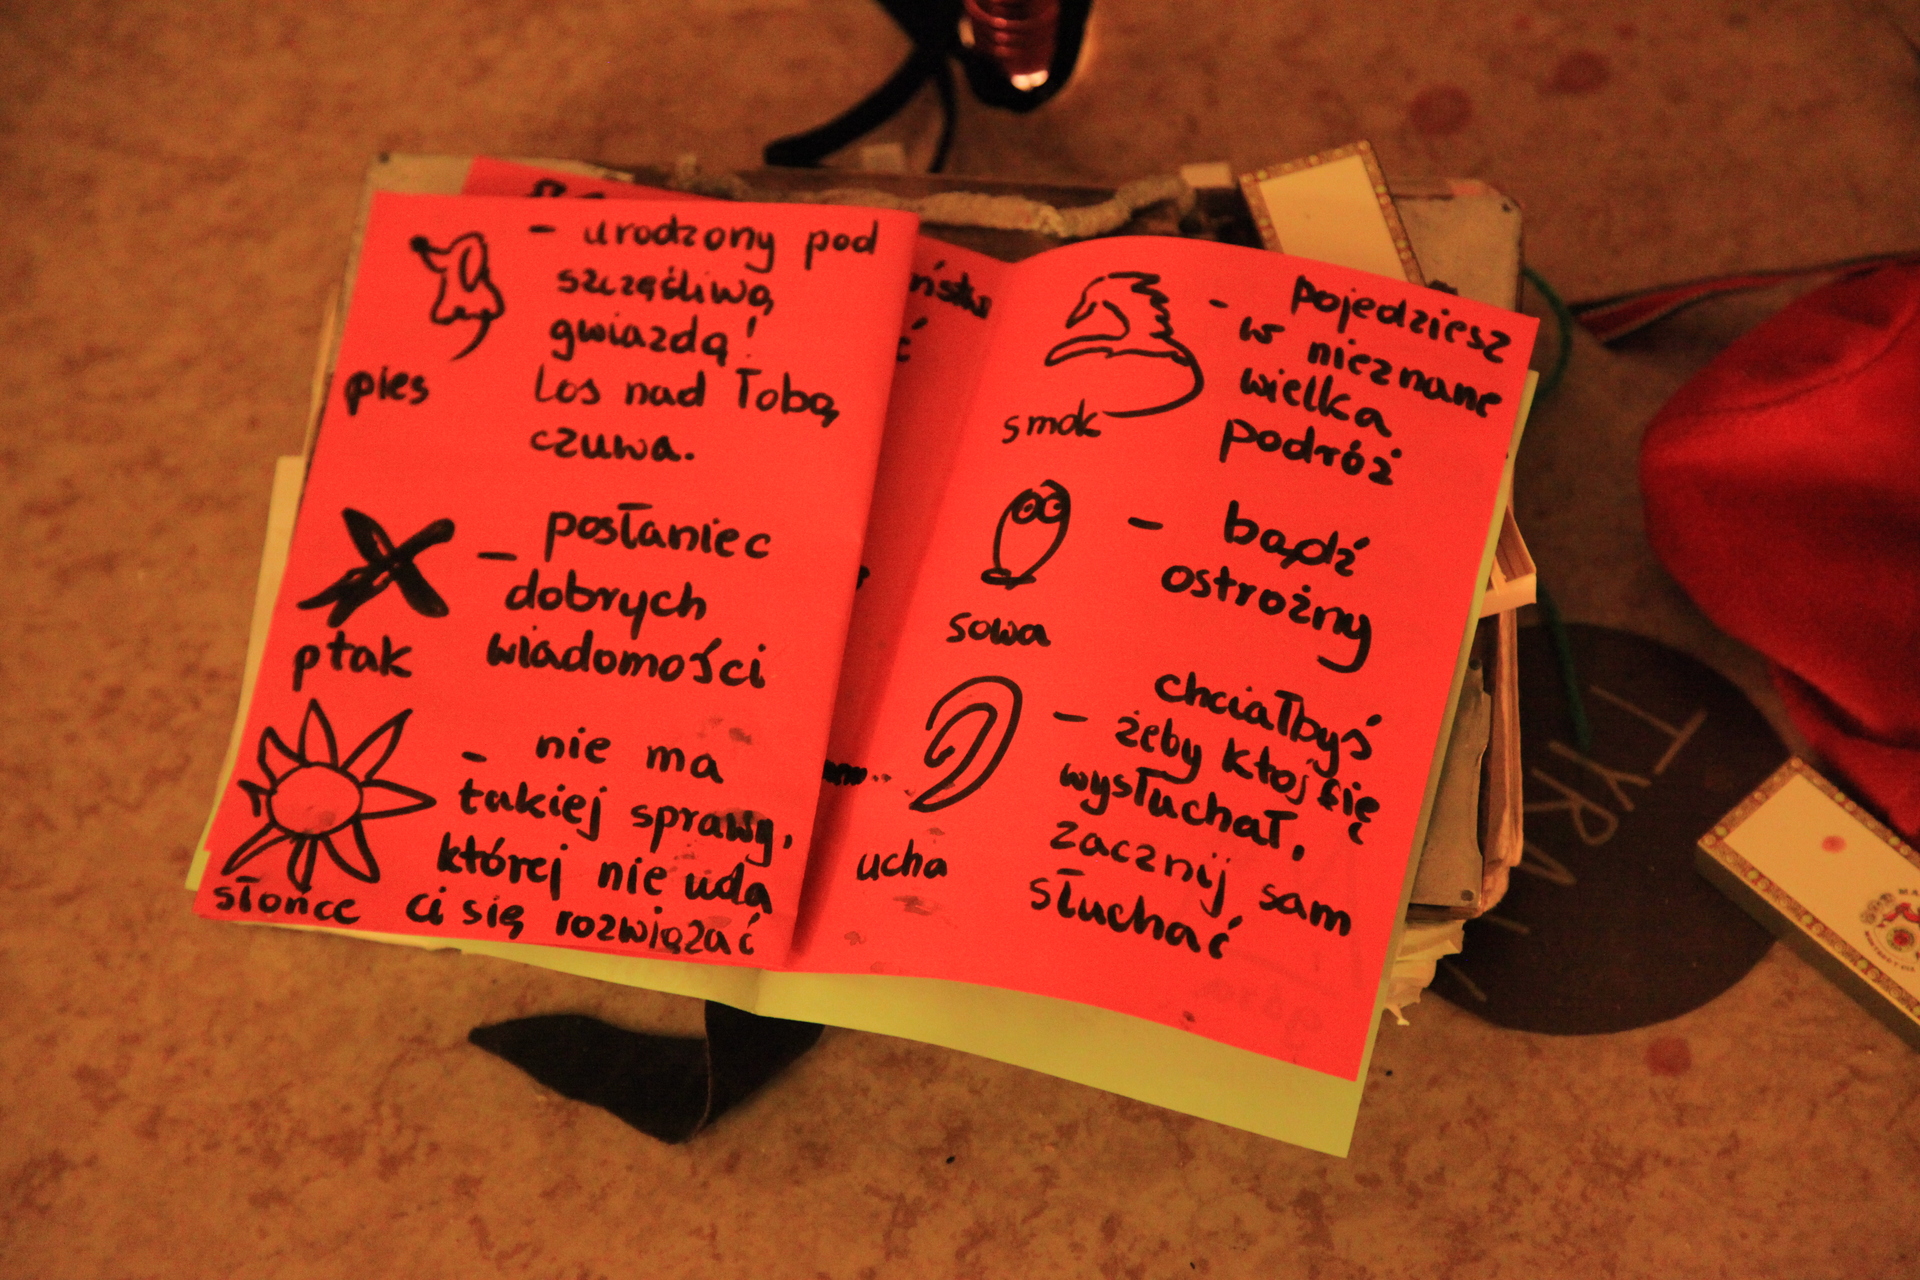 - urodzony pod
szczęśliwą
gwiazdą!
Los nad Tobą
czuwa.
pies
- posłaniec
dobrych
wiadomości
ptak
- nie ma
takiej sprawy,
której nie uda
ci się rozwiązać
słońce
- pojedziesz
w nieznane
wielka
podróż
smok
- bądź
ostrożny
sowa
chciałbyś
- żeby ktoś cię
wysłuchał,
zacznij sam
słuchać
ucha
TYRA